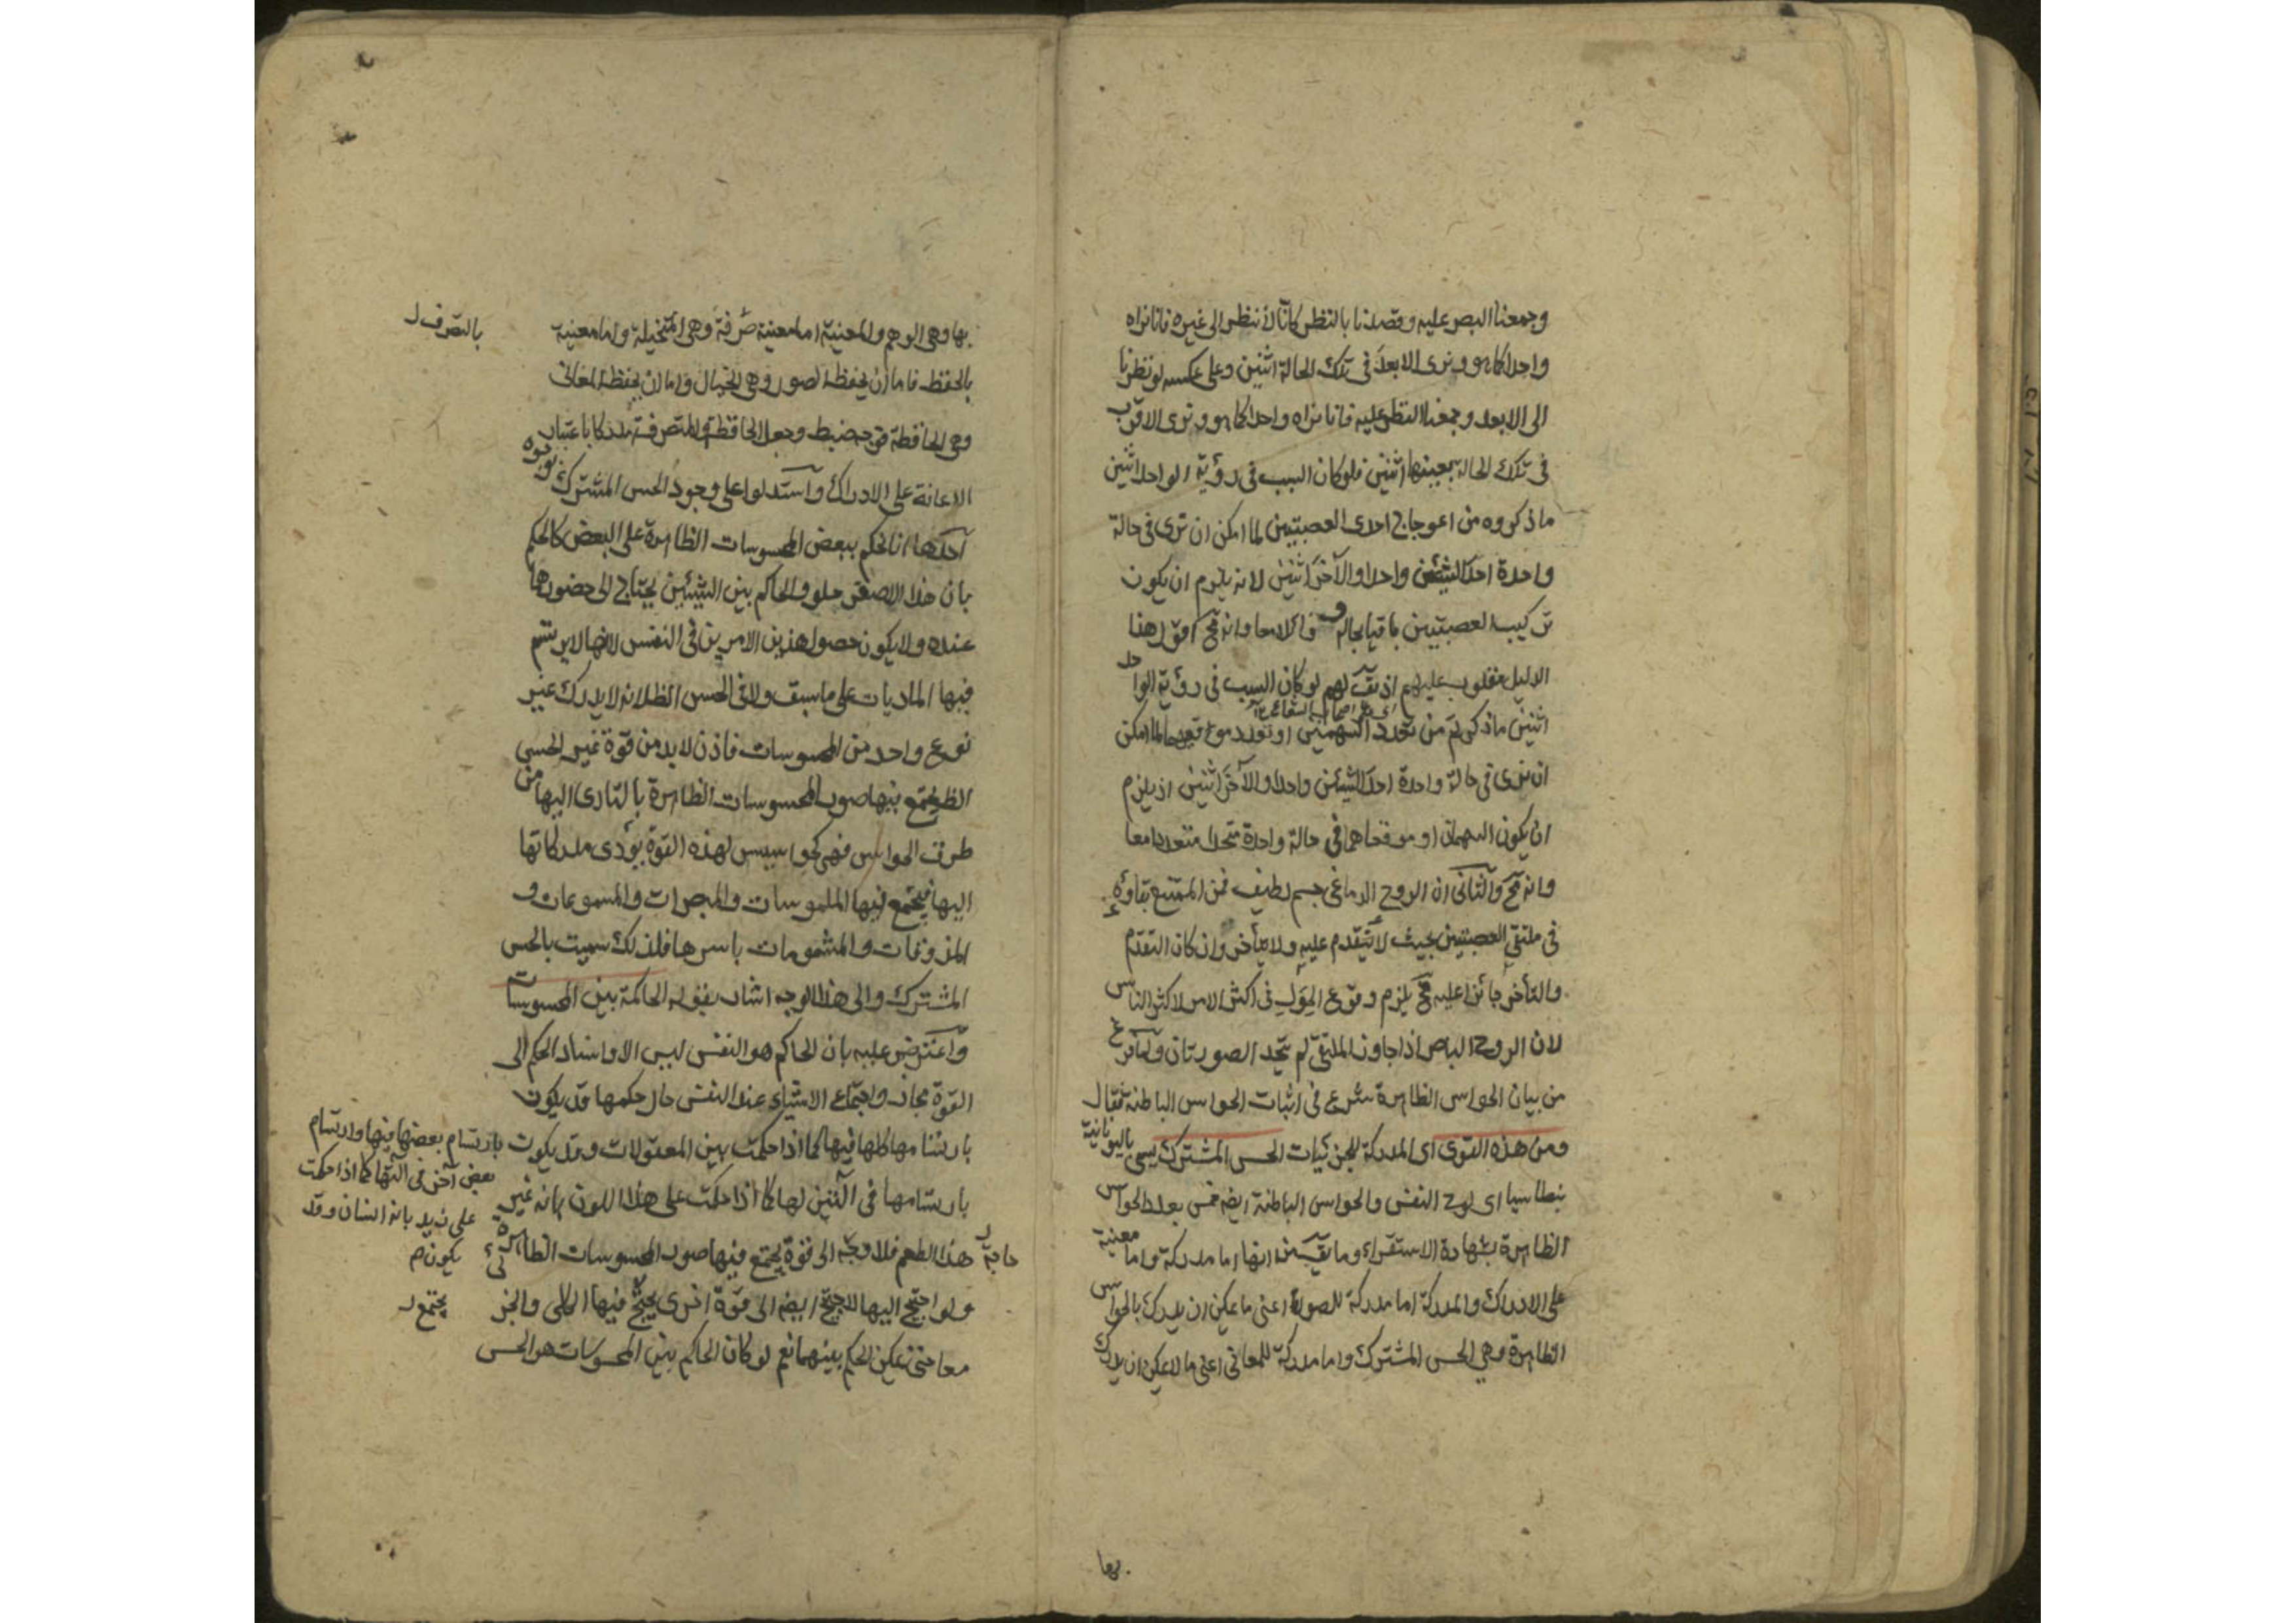 وجمعنا البصر عليه وقصدنا بالنظر كأنّا لا ننظر الى غيره فانا نراه
واحدا كما هو ونرى الابعد فى تلك الحالة اثنين وعلى عكسه لو نظرنا
الى الابعد وجمعنا النظر عليه فانا نراه واحدا كما هو ونرى الاقرب
فى تلك الحالة بعينها اثنين فلو كان السبب فى رؤية الواحد اثنين
ما ذكروه من اعوجاج احدى العصبتين لما امكن ان نرى فى حالة
واحدة احد الشيئين واحدا والآخر اثنين لانه يلزم ان يكون
تركيب العصبتين باقيا بحاله و زائلا معا وانه مح اقول هذا
الدليل مقلوب عليهم اذ يق لهم لو كان السبب فى رؤية الواحد
اى على اصحاب الشعاع
اثنين ما ذكرتم من تعدد السهمين او تعدد موقعهما لما امكن
ان نرى فى حالة واحدة احد الشيئين واحدا والآخر اثنين اذ يلزم
ان يكون السهمان او موقعاهما فى حالة واحدة متحدا متعددا معا
وانه مح والثانى ان الروح الدماغى جسم لطيف فمن الممتنع بقاؤه
فى ملتقى العصبتين بحيث لا يتقدم عليه ولا يتأخر وان كان التقدم
والتأخر جائزا عليه فح يلزم وقوع الحول فى اكثر الامر لاكثر الناس
لان الروح الباصر اذا جاوز الملتقى لم يتحد الصورتان ولما فرغ
من بيان الحواس الظاهرة شرع فى اثبات الحواس الباطنة فقال
ومن هذه القوى اى المدركة للجزئيات الحس المشترك يسمى باليونانية
بنطاسيا اى لوح النفس والحواس الباطنة ايضه خمس بعدد الحواس
الظاهرة بشهادة الاستقراء وما يق من انها اما مدركة واما معينة
على الادراك والمدركة اما مدركة للصورة اعنى ما يمكن ان يدرك بالحواس
الظاهرة وهى الحس المشترك واما مدركة للمعانى اعنى ما لا يمكن ان يدرك
بها
بها وهى الوهم والمعنية اما معينة متصرفة وهى المتخيلة واما معينة
بالتصرف
بالحفظ فاما ان يحفظ الصور وهى الخيال واما ان يحفظ المعانى
وهى الحافظة فوجه ضبط وجعل الحافظة والمتصرفة مدركا باعتبار
الاعانة على الادراك واستدلوا على وجود الحس المشترك بوجوه
احدها انا نحكم ببعض المحسوسات الظاهرة على البعض كالحكم
بان هذا الاصفر حلو والحاكم بين الشيئين يحتاج الى حضورهما
عنده ولا يكون حصول هذين الامرين فى النفس لانها لا يرتسم
فيها الماديات على ما سبق ولا فى الحس الظ لانه لا يدرك غير
نوع واحد من المحسوسات فاذن لا بد من قوة غير الحس
الظ يجتمع فيها صور المحسوسات الظاهرة بالتأدى اليها من
طرق الحواس فهى كجواسيس لهذه القوة يؤدى مدركاتها
اليها فيجتمع فيها الملموسات والمبصرات والمسموعات و
المذوقات والمشمومات باسرها فلذلك سميت بالحس
المشترك والى هذا الوجه اشار بقوله الحاكمة بين المحسوسات
واعترض عليه بان الحاكم هو النفس ليس الا واسناد الحكم الى
القوة مجاز واجتماع الاشياء عند النفس حال حكمها قد يكون
بارتسامها كلها فيها كما اذا حكمت بين المعقولات وقد يكون
بارتسام بعضها فيها وارتسام
بعض آخر فى آلتها كما اذا حكمت
على زيد بانه انسان وقد
يكون م
بارتسامها فى آلتين لها كما اذا حكمت على هذا اللون بانه غير
هذا الطعم فلا وجه الى قوة يجتمع فيها صور المحسوسات الظاهرة
حاجة
ولو احتيج اليها لاحتيج ايضه الى قوة اخرى يجتمع فيها الكلى والجزئى
يجتمع
معا حتى يمكن الحكم بينهما نعم لو كان الحاكم بين المحسوسات هو الحس